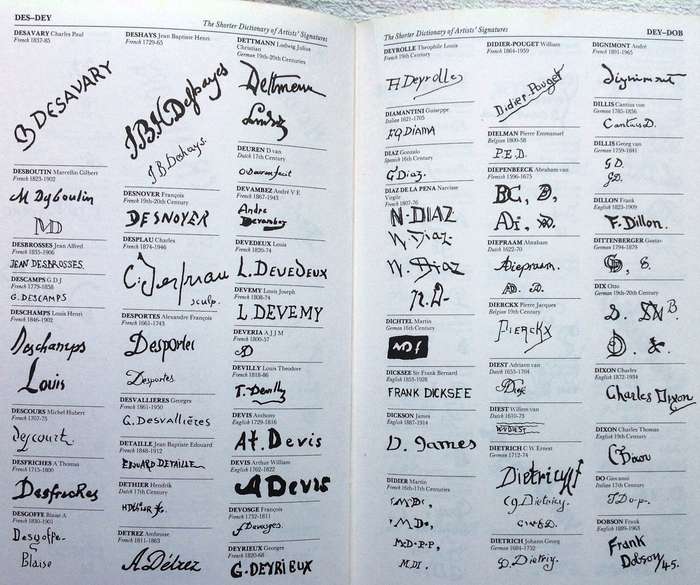 DES–DEY
The Shorter Dictionary of Artists' Signatures
DESAVARY Charles Paul
French 1837-85
B DESAVARY
DESBOUTIN Marcellin Gilbert
French 1823-1902
M Dyboulin
MD
DESBROSSES Jean Alfred
French 1835-1906
JEAN DESBROSSES.
DESCAMPS G D J
French 1779-1858
G. DESCAMPS
DESCHAMPS Louis Henri
French 1846-1902
Deschamps
Louis
DESCOURS Michel Hubert
French 1707-75
descourt
DESFRICHES A Thomas
French 1715-1800
Desfriches
DESGOFFE Blaise A
French 1830-1901
Desgoffe-
Blaise
DESHAYS Jean Baptiste Henri
French 1729-65
J.B.H Deshayes
J.B. Deshays.
DESNOYER François
French 19th-20th Century
DESNOYER
DESPLAU Charles
French 1874-1946
C. Despiau
sculp.
DESPORTES Alexandre François
French 1661-1743
Desportes
Desportes.
DESVALLIERES Georges
French 1861-1950
G. Desvallières
DETAILLE Jean Baptiste Edouard
French 1848-1912
EDOUARD DETAILLE.
DETHIER Hendrik
Dutch 17th Century
DETREZ Ambroise
French 1811-1863
A. Détrez
DETTMANN Ludwig Julius
Christian
German 19th-20th Centuries
Dettmann
Ludwig
DEUREN D van
Dutch 17th Century
DEVAMBEZ André V E
French 1867-1943
Andre
Devambez
DEVEDEUX Louis
French 1820-74
L. DEVEDEUX
DEVEMY Louis Joseph
French 1808-74
L DEVEMY
DEVERIA A J J M
French 1800-57
AD
DEVILLY Louis Theodore
French 1818-86
T. Devilly
DEVIS Anthony
English 1729-1816
At. Devis
DEVIS Arthur William
English 1762-1822
A Devis
DEVOSGE François
French 1732-1811
f Devoges.
DEYRIEUX Georges
French 1820-68
G. DEYRIEUX
The Shorter Dictionary of Artists' Signatures
DEY–DOB
DEYROLLE Théophile Louis
French 19th-20th Centuries
Th Deyrolle
DIAMANTINI Giuseppe
Italian 1621-1705
DIAZ Gonzalo
Spanish 16th Century
G. Diaz.
DIAZ DE LA PENA Narcisse
Virgile
French 1807-76
N·DIAZ
N. Diaz
N. Diaz
n. D-
DICHTEL Martin
German 16th Century
DICKSEE Sir Frank Bernard
English 1853-1928
FRANK DICKSEE
DICKSON James
English 1887-1914
D. James
DIDIER Martin
French 16th-17th Centuries
·M·D·,
·M·D·,
M·D·P·P,
M. DI.
DIDIER-POUGET William
French 1864-1959
Didier-Pouget
DIELMAN Pierre Emmanuel
Belgian 1800-58
P.E.D.
DIEPENBEECK Abraham van
Flemish 1596-1675
DIEPRAAM Abraham
Dutch 1622-70
Diepraam.
DIERCKX Pierre Jacques
Belgian 19th Century
PIERCKX
DIEST Adriaen van
Dutch 1655-1704
Diest
DIEST Willem van
Dutch 1610-73
DIETRICH C W Ernest
German 1712-74
Dietricy
DIETRICH Johann Georg
German 1684-1752
D. Dietriy.
DIGNIMONT André
French 1891-1965
Dignimont
DILLIS Cantius von
German 1785-1856
Cantius D.
DILLIS Georg van
German 1759-1841
GD.
GD.
DILLON Frank
English 1823-1909
F. Dillon.
DITTENBERGER Gustav
German 1794-1879
DIX Otto
German 19th-20th Century
DIXON Charles
English 1872-1934
Charles Dixon
DIXON Charles Thomas
English 19th Century
C Dixon
DO Giovanni
Italian 17th Century
DOBSON Frank
English 1889-1963
Frank
Dobson/45.